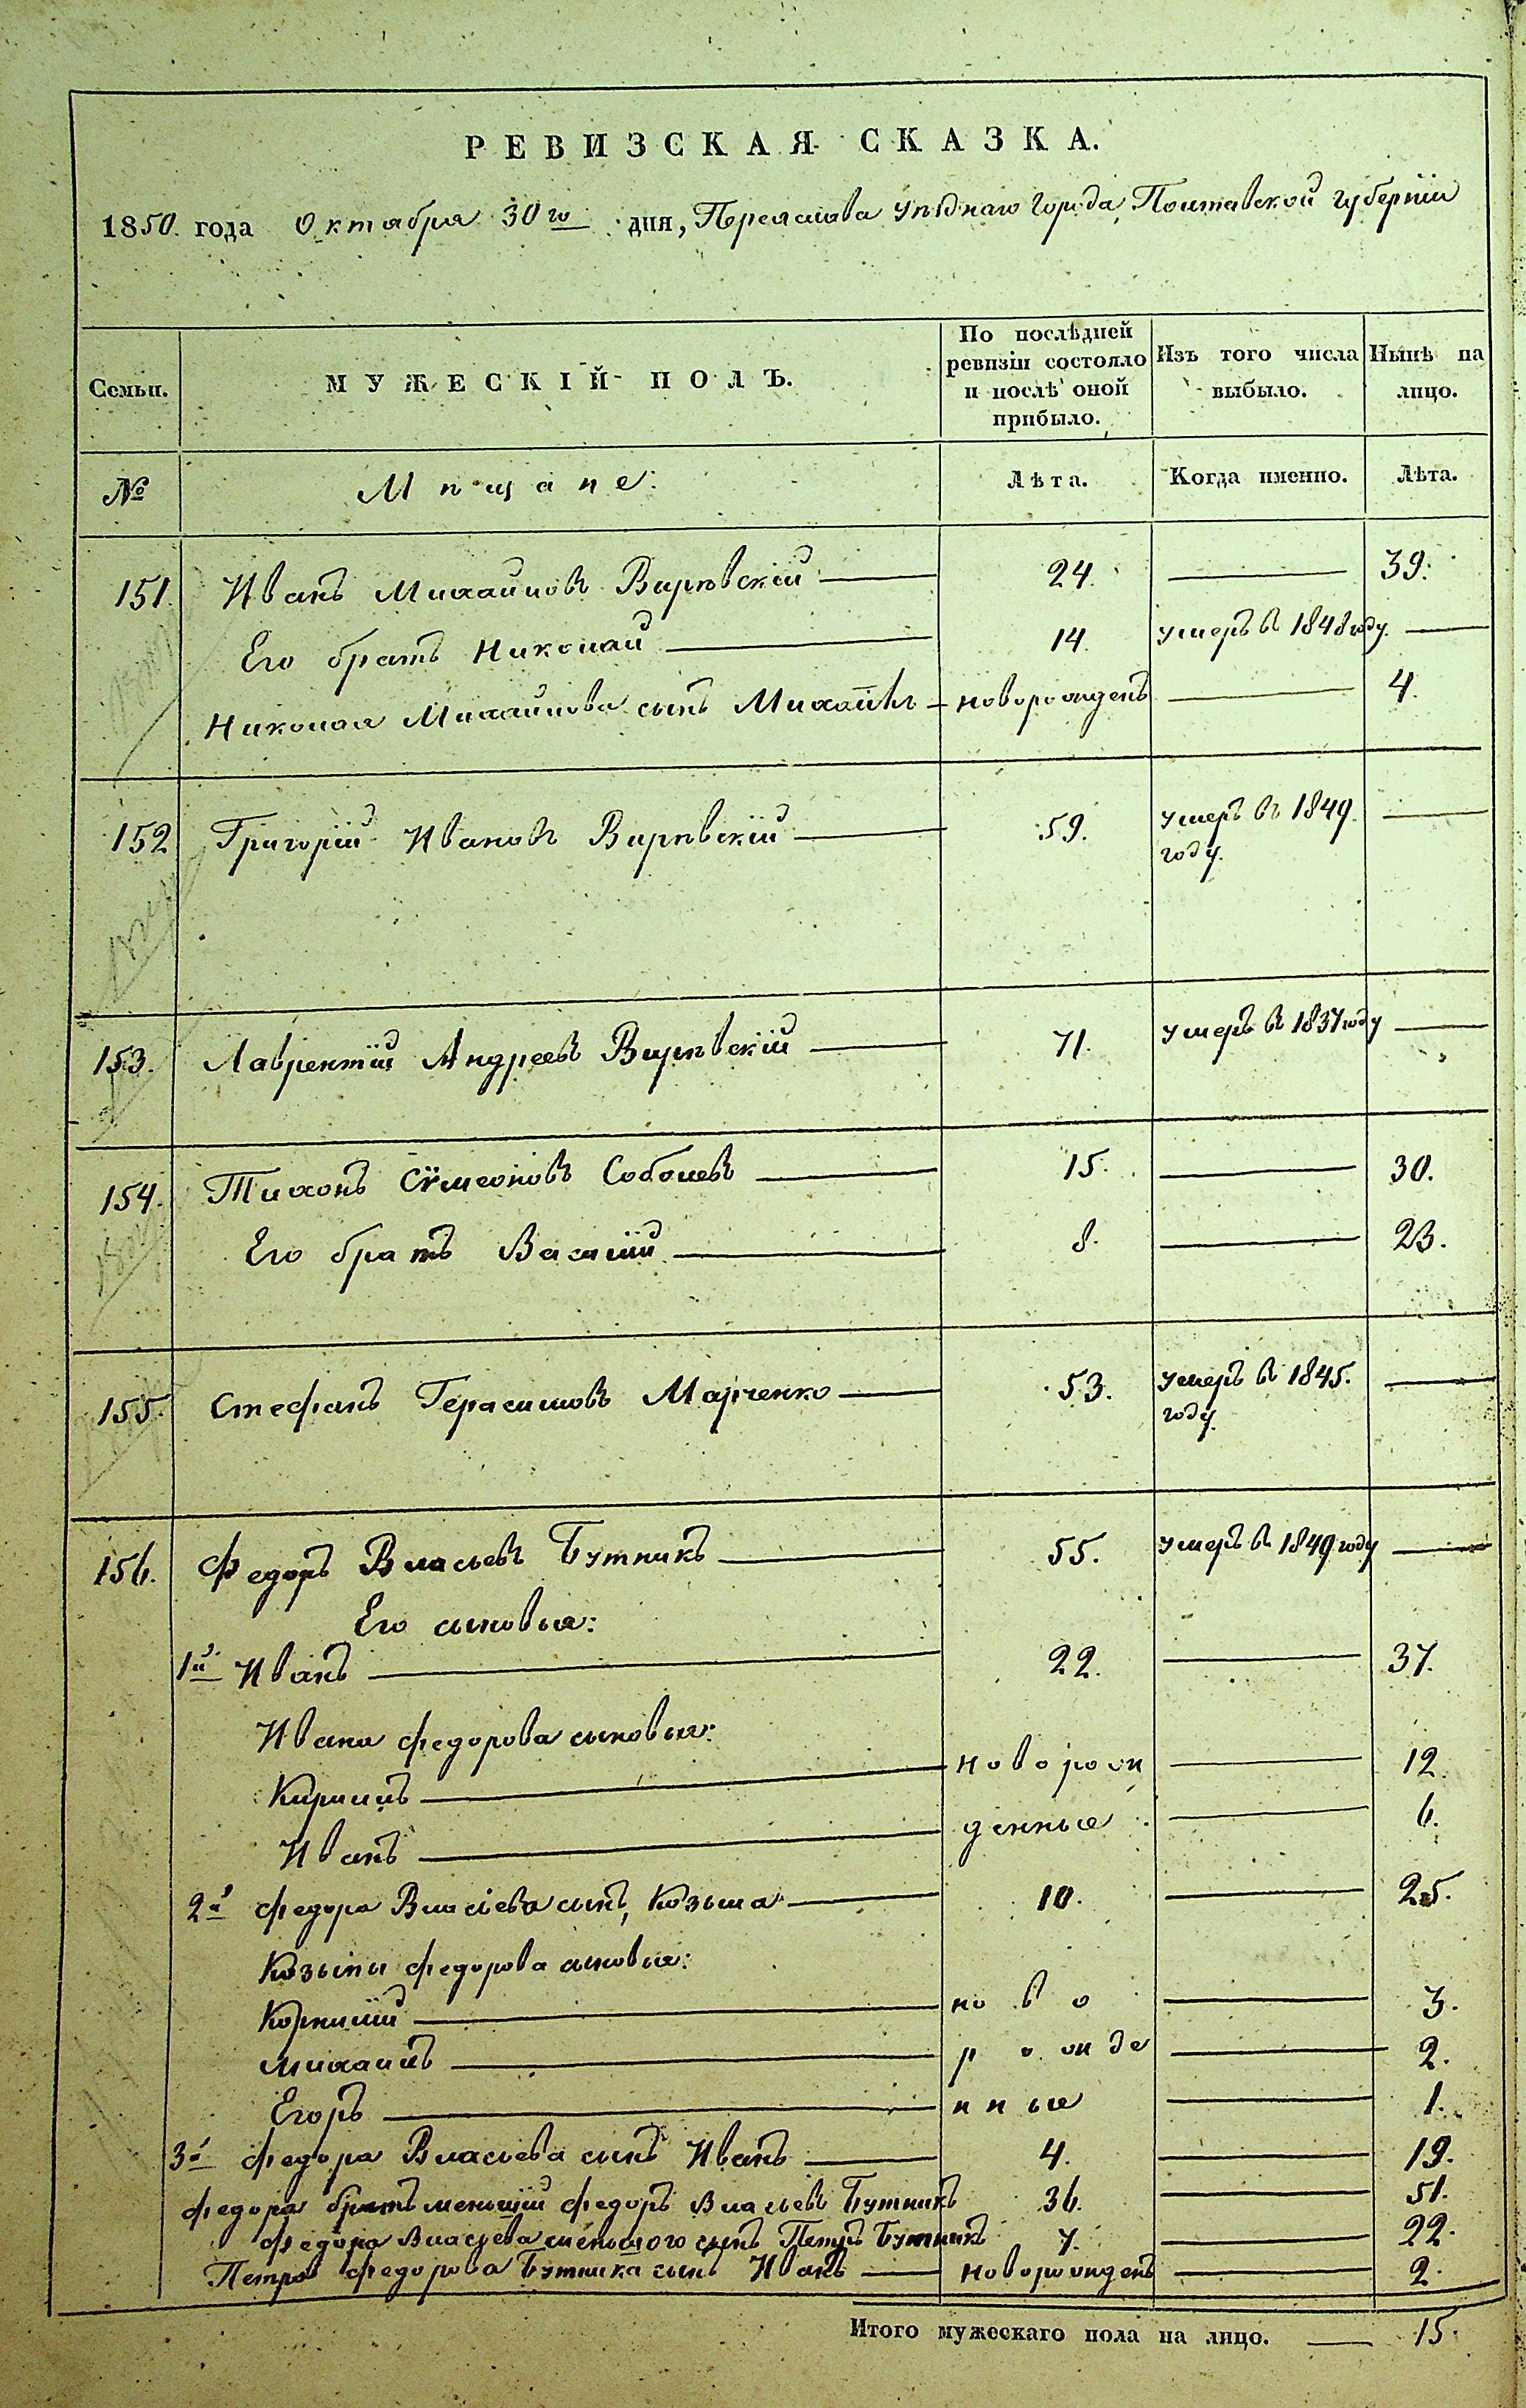 РЕВИЗСКАЯ СКАЗКА.
1850. года Октября 30го дня, Переяслова уѣзднаго города, Полтавской губерніи
Семьи.
МУЖЕСКІЙ ПОЛЪ.
По послѣдней
ревизіи состояло
и послѣ оной
прибыло.
Изъ того числа
выбыло.
Нынѣ на
лицо.
№ Мѣщане: Лѣта. Когда именно. Лѣта.
151. Иванъ Михайловъ Вирѣвскій 24. 39.
Его братъ Николай 14. умеръ въ 1848 году.
Николая Михайлова сынъ Михаилъ новорожденъ 4.
152 Григорій Ивановъ Вирѣвскій 59. умеръ въ 1849.
году.
153. Лаврентій Андреевъ Вирѣвскій 71. умеръ въ 1837 году
154. Тихонъ Сѵмеоновъ Соболевъ 15. 30.
Его братъ Василій 8. 23.
155. Стефанъ Герасимовъ Марченко 53. умеръ въ 1845.
году.
156. Федоръ Власьевъ Бутникъ 55. умеръ въ 1849 году
Его сыновья:
1й Иванъ 22. 37.
Ивана Федорова сыновья:
Кирилъ новорож 12.
Иванъ денные 6.
2й Федора Власьева сынъ, Козьма 10. 25.
Козьмы Федорова сыновья:
Корнилій ново 3.
Михаилъ рожде 2.
Егоръ нные 1.
3й Федора Власьева сынъ Иванъ 4. 19.
Федора братъ меньшій Федоръ Власьевъ Бутникъ 36. 51.
Федора Власьева меньшого сынъ Петръ Бутникъ 7. 22.
Петра Федорова Бутника сынъ Иванъ новорожденъ 2.
Итого мужескаго пола на лицо. 15.